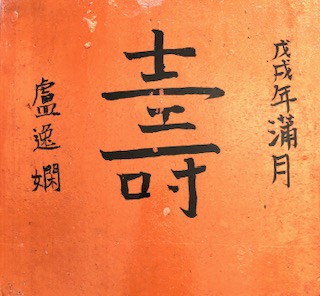 戊戌年蒲月
壽
盧逸嫻